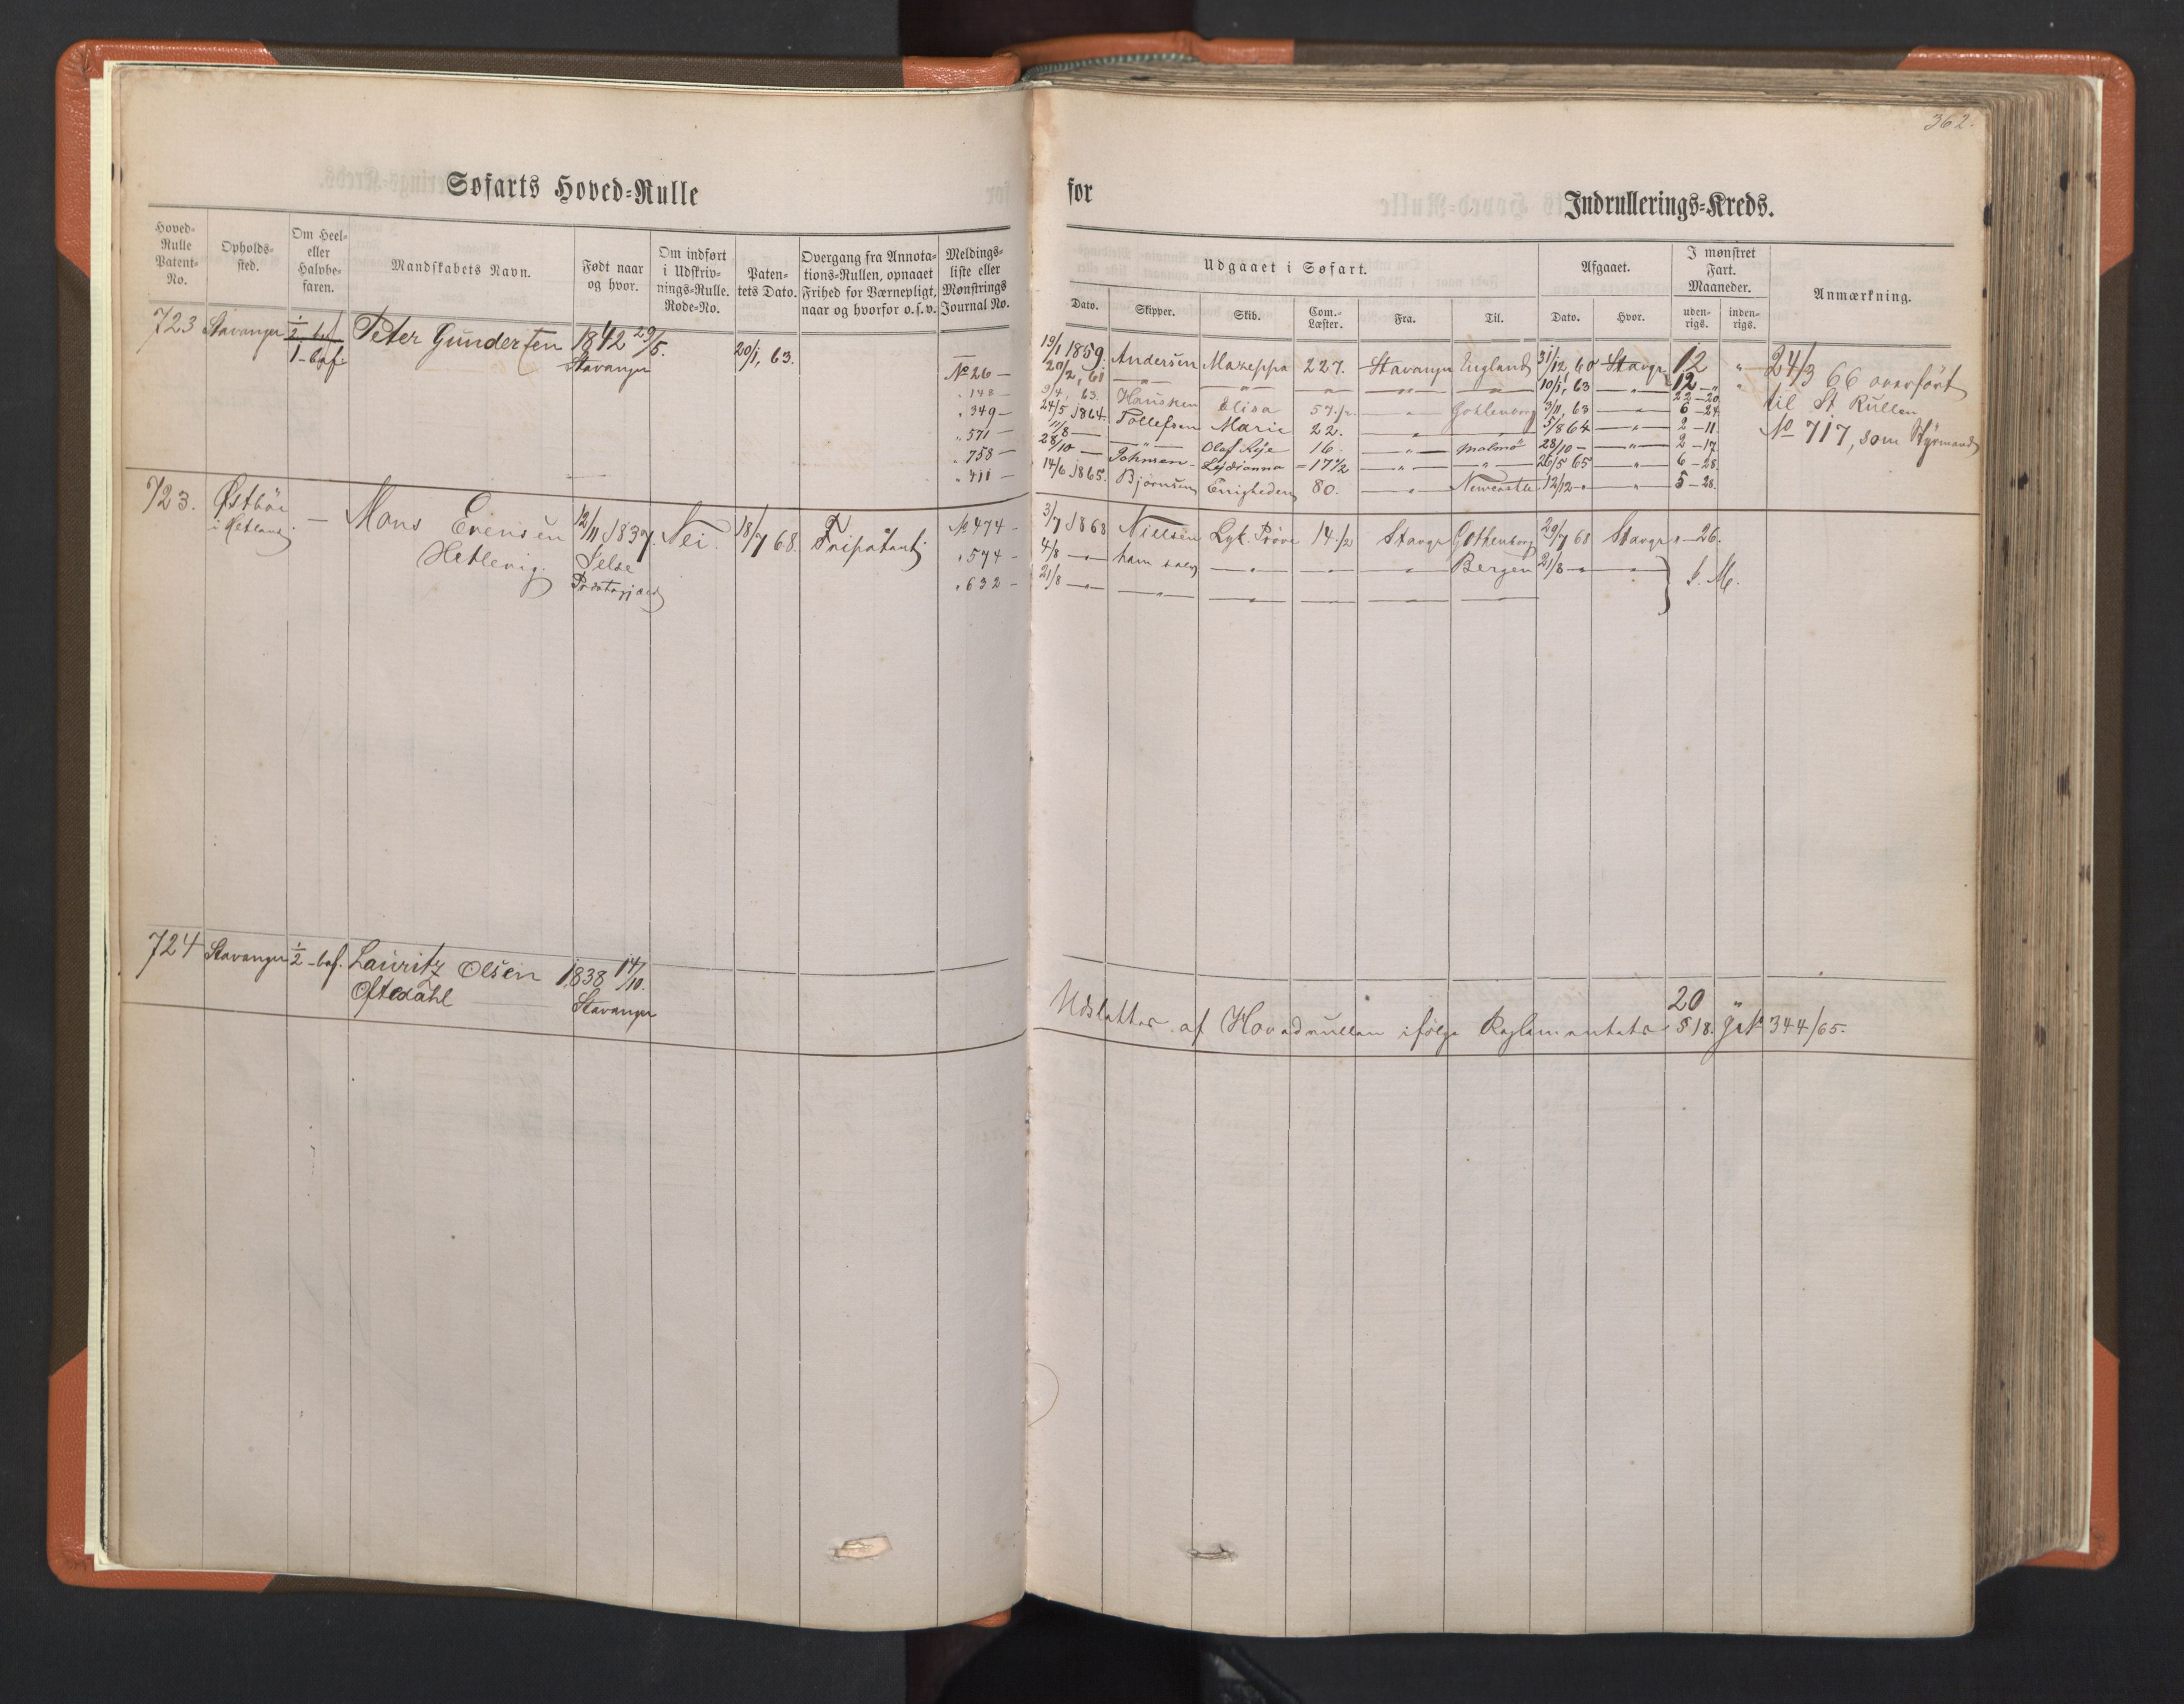 362.
Søfarts Hoved=Rulle
for
Indrullerings=Kreds.
Hoved=
Rulle
Patent=
No.
Opholds=
sted.
Om Heel=
eller
Halvbe=
faren.
Mandskabets Navn.
Født naar
og hvor.
Om indført
i Udskriv=
nings=Rulle.
Rode=No.
Paten=
tets Dato.
Overgang fra Annota=
tions=Rullen, opnaaet
Frihed for Værnepligt,
naar og hvorfor o.s.v.
Meldings=
liste eller
Mønstrings
Journal No.
Udgaaet i Søfart.
Dato.
Skipper.
Skib.
Com.=
Læster.
Fra.
Til.
Afgaaet.
Dato.
Hvor.
I mønstret
Fart.
Maaneder.
uden=
rigs.
inden=
rigs.
Anmærkning.
723 Stavanger 1/2 bef 1 - bef. Peter Gundersen 1842 29/5. Stavanger 20/1, 63.
No 26 — 19/1 1859. Andersen Mazeppa 227. Stavanger England 31/12, 60 Stavgr 12 "
" 148 — 20/2, 61 — " — — " — — " — — " — — " — 10/1, 63 — " — 12 — " "
" 349 — 9/4, 63. Hausken Elisa 57.1/2 — " — Gothenborg 3/11, 63 — " — 22 - 20
" 571 — 24/5 1864. Tollefsen Marie 22. — " — — " — 5/8 64 — " — 6 - 24
" 758 — 11/8 — — " — Olaf Rye 16 — " — Malmö 28/10 — — " — 2 - 11
28/10 — Johnsen - Lydianna - 17 1/2 — " — — " — 26/5 65 — " — 2 - 17
" 411 — 14/6 1865. Bjørnsen Enigheden 80. — " — Newcastle 12/12 - " — " — 6 - 28
5 - 28.
24/3 66 overført
til St Rullen
No 717, som Styrmand
723. Østbøe i Hetland. — Mons Evensen Hetlevig. 12/11 1837. Jelse Præstegjæld Nei. 18/7 68. Fripatent
No 474 - 3/7 1868 Nielsen Lyk. Prøve 14.1/2 Stavgr Gothenborg 29/7 68 Stavgr " — 26.
" 574 - 4/8 — " — ham selv — " — — " — — " — Bergen 21/8 - " — " — } I. M.
" 632 - 21/8 — " — — " — — " — — — —
724 Stavanger 1/2 - bef. Lauritz Olsen Oftedahl 1838 14/10. Stavanger
Udslettes af Hovedrullen ifølge Reglementets § 18. 20 " J. No 344/65.